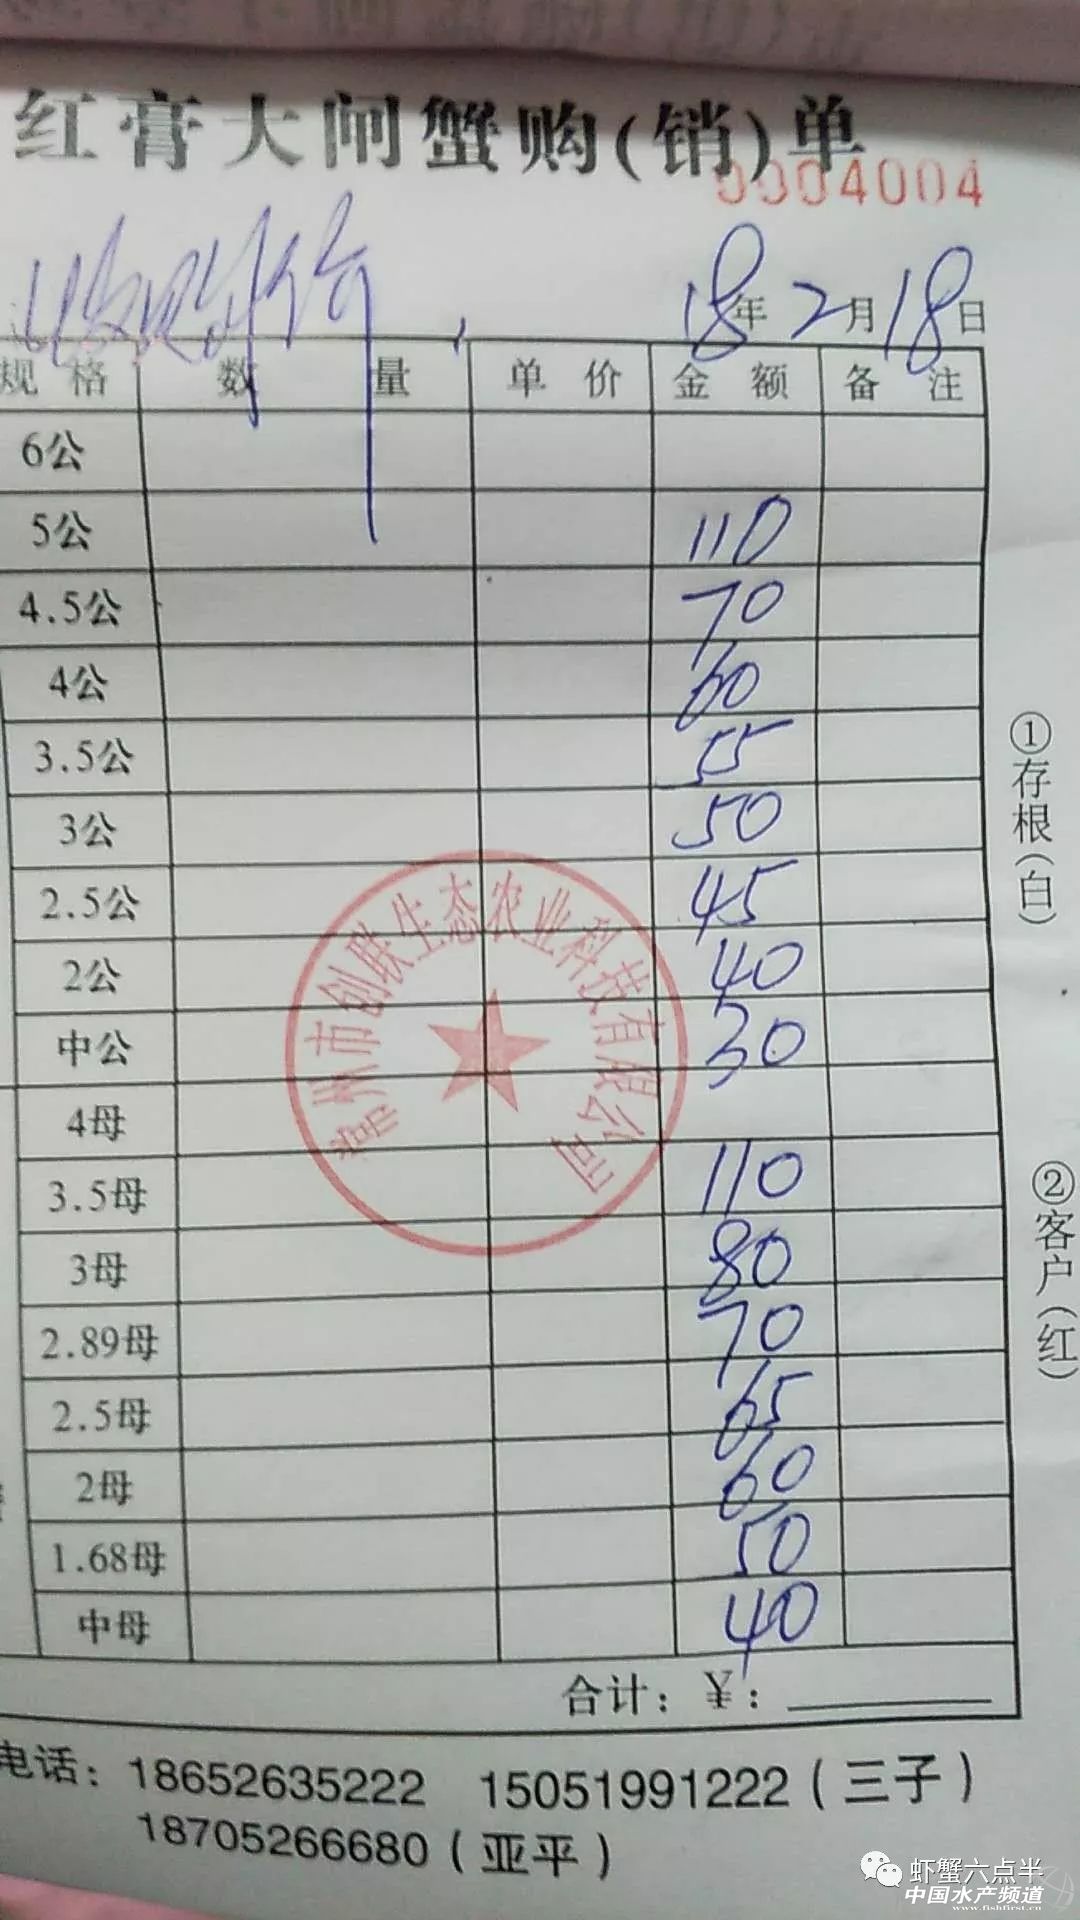 红膏大闸蟹购(销)单
0004004
收购价
18年2月18日
规格 数量 单价 金额 备注
6公
5公 110
4.5公 70
4公 60
3.5公 55
3公 50
2.5公 45
2公 40
中公 30
4母
3.5母 110
3母 80
2.89母 70
2.5母 65
2母 60
1.68母 50
中母 40
合计：￥：
电话：18652635222 15051991222（三子）
18705266680（亚平）
①存根(白)
②客户(红)
常州市创联生态农业科技有限公司
虾蟹六点半
中国水产频道
www.fishfirst.cn